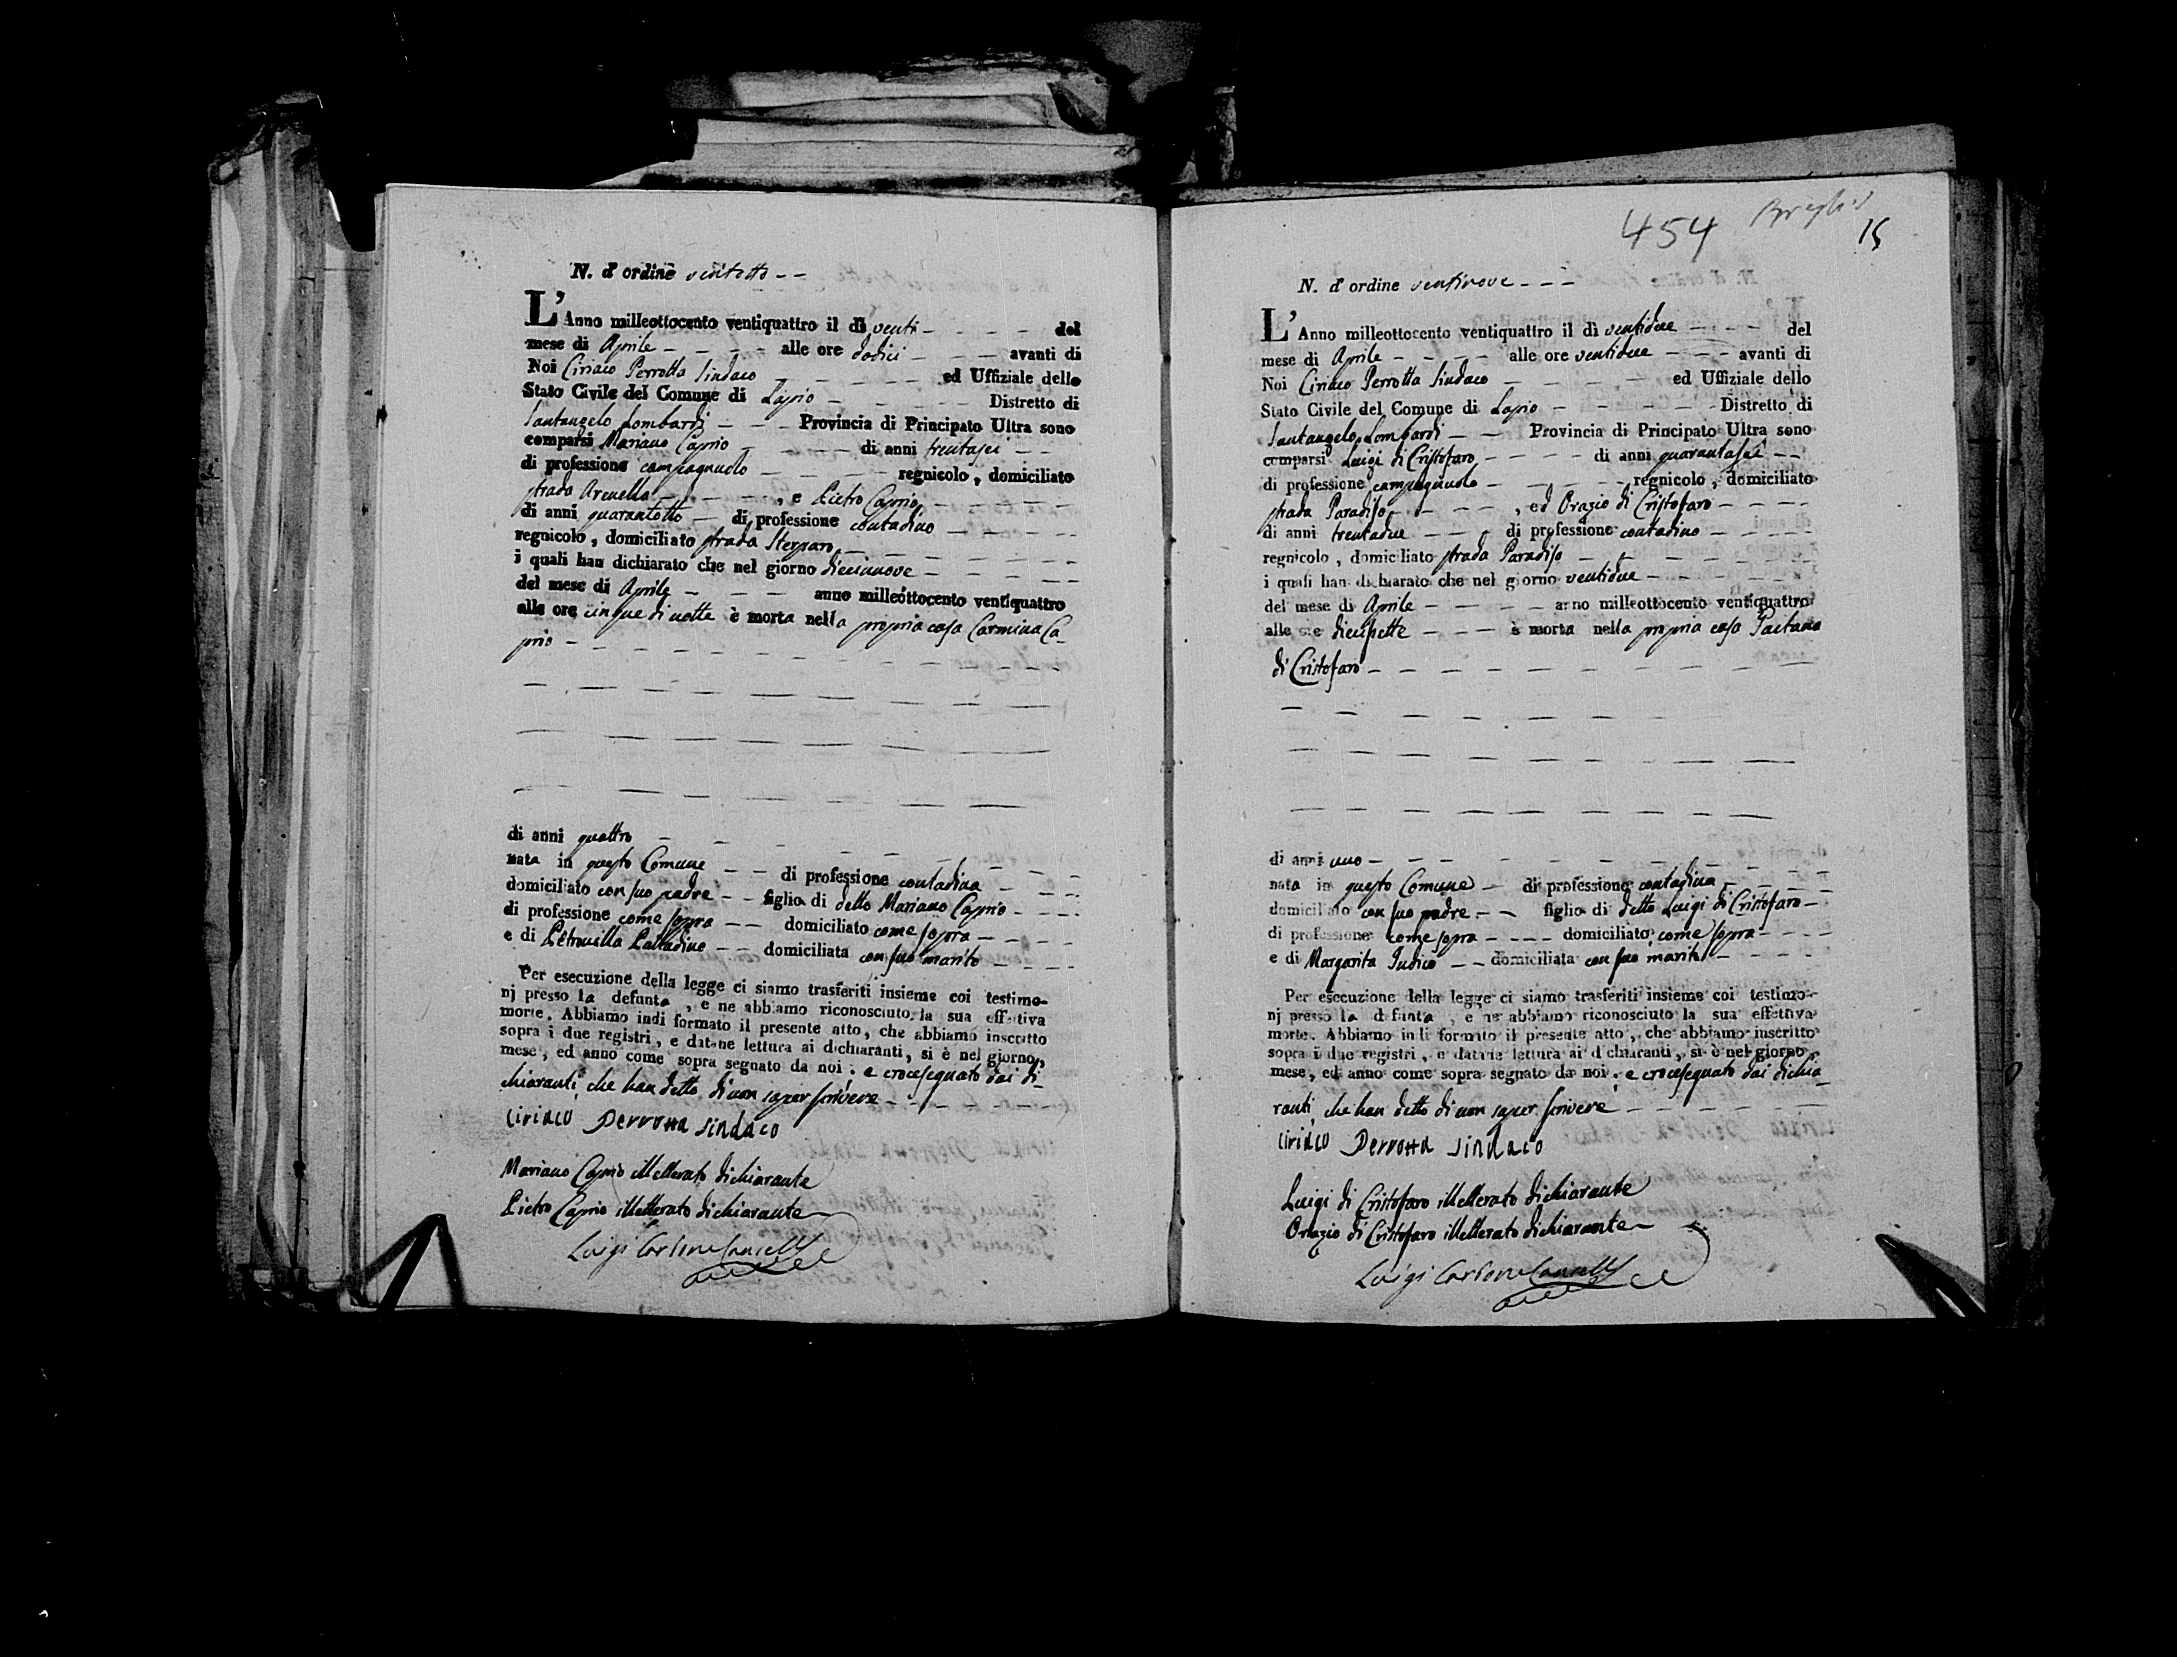 N. d'ordine ventotto
L'Anno milleottocento ventiquattro il dì venti del
mese di Aprile alle ore dodici avanti di
Noi Ciriaco Perrotta Sindaco ed Uffiziale dello
Stato Civile del Comune di Lapio Distretto di
Santangelo Lombardi Provincia di Principato Ultra sono
comparsi Mariano Caprio di anni trentasei
di professione campagnuolo regnicolo, domiciliato
strada Arenella, e Pietro Caprio
di anni quarantotto di professione contadino
regnicolo, domiciliato strada Sterparo
i quali han dichiarato che nel giorno diecinnove
del mese di Aprile anno milleottocento ventiquattro
alle ore cinque di notte è morta nella propria casa Carmina Ca-
prio
di anni quattro
nata in questo Comune di professione contadina
domiciliato con suo padre figlia di detto Mariano Caprio
di professione come sopra domiciliato come sopra
e di Petronilla Palladino domiciliata con suo marito
Per esecuzione della legge ci siamo trasferiti insieme coi testimo-
nj presso la defunta, e ne abbiamo riconosciuto la sua effettiva
morte. Abbiamo indi formato il presente atto, che abbiamo inscritto
sopra i due registri, e datane lettura ai dichiaranti, si è nel giorno,
mese, ed anno come sopra segnato da noi. e crocesegnato dai di-
chiaranti che han detto di non saper scrivere
Ciriaco Perrotta Sindaco
Mariano Caprio illetterato dichiarante
Pietro Caprio illetterato dichiarante
Luigi Carbone
454
15
N. d'ordine ventinove
L'Anno milleottocento ventiquattro il dì ventidue del
mese di Aprile alle ore ventidue avanti di
Noi Ciriaco Perrotta Sindaco ed Uffiziale dello
Stato Civile del Comune di Lapio Distretto di
Santangelo Lombardi Provincia di Principato Ultra sono
comparsi Luigi di Cristofaro di anni quarantasei
di professione campagnuolo regnicolo, domiciliato
strada Paradiso, ed Orazio di Cristofaro
di anni trentadue di professione contadino
regnicolo, domiciliato strada Paradiso
i quali han dichiarato che nel giorno ventidue
del mese di Aprile anno milleottocento ventiquattro
alle ore diecisette è morta nella propria casa Gaetana
di Cristofaro
di anni uno
nata in questo Comune di professione contadina
domiciliato con suo padre figlia di detto Luigi di Cristofaro
di professione come sopra domiciliato come sopra
e di Margarita Iudice domiciliata con suo marito
Per esecuzione della legge ci siamo trasferiti insieme coi testimo-
nj presso la defunta, e ne abbiamo riconosciuto la sua effettiva
morte. Abbiamo indi formato il presente atto, che abbiamo inscritto
sopra i due registri, e datane lettura ai dichiaranti, si è nel giorno,
mese, ed anno come sopra segnato da noi. e crocesegnato dai dichia-
ranti che han detto di non saper scrivere
Ciriaco Perrotta Sindaco
Luigi di Cristofaro illetterato dichiarante
Orazio di Cristofaro illetterato dichiarante
Luigi Carbone